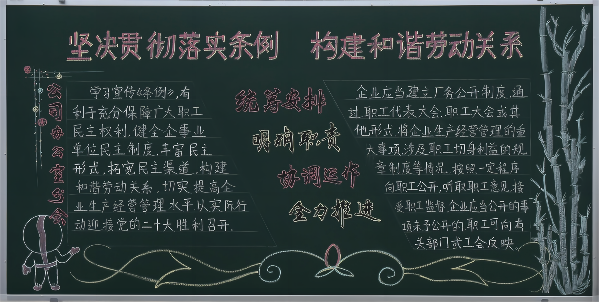 坚决贯彻落实条例 构建和谐劳动关系
学习宣传《条例》,有
利于充分保障广大职工
民主权利,健全企事业
单位民主制度,丰富民主
形式,拓宽民主渠道,构建
和谐劳动关系,切实提高企
业生产经营管理水平以实际行
动迎接党的二十大胜利召开.
统筹安排
明确职责
协调运作
全力推进
企业应当建立厂务公开制度,通
过职工代表大会、职工大会或其
他形式,将企业生产经营管理的重
大事项,涉及职工切身利益的规
章制度等情况,按照一定程序
向职工公开,听取职工意见,接
受职工监督.企业应当公开的事
项未予公开的职工可向有
关部门或工会反映